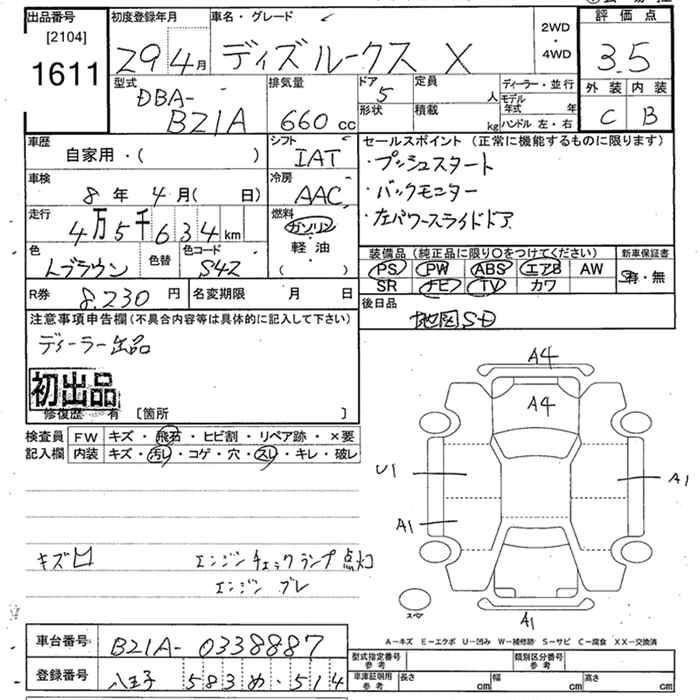 出品番号 初度登録年月 車名・グレード 2WD・4WD 評価点
[2104]
1611 29 4月 ディズルークス X 3.5
型式 排気量 ドア 定員 ディーラー・並行 外装 内装
DBA- 5 人 モデル年式 年 C B
B21A 660cc 形状 積載 kg ハンドル 左・右
車歴 シフト セールスポイント (正常に機能するものに限ります)
自家用・( ) IAT ・プッシュスタート
車検 冷房 ・バックモニター
8年 4月( 日) AAC ・左パワースライドドア
走行 燃料
4万5千634km ガソリン
軽・油
・( )
装備品 (純正品に限り〇をつけてください) 新車保証書
PS PW ABS エアB AW 有・無
SR ナビ TV カワ
色 色替 色コード
Lブラウン S42
R券 8,230円 名変期限 月 日
後日品
地図SD
注意事項申告欄(不具合内容等は具体的に記入して下さい)
ディーラー出品
初出品
修復歴 有 [箇所 ]
検査員 FW キズ・飛石・ヒビ割・リペア跡・×要
記入欄 内装 キズ・汚レ・コゲ・穴・スレ・キレ・破レ
A4
A4
U1
A1
A1
スペア
A1
キズ凹 エンジンチェックランプ点灯
エンジン ブレ
A-キズ E-エクボ U-凹み W-補修跡 S-サビ C-腐食 XX-交換済
車台番号 B21A-0338887
型式指定番号 参考 類別区分番号 参考
登録番号 八王子 583 め・514
車庫証明用 参考 長さ cm 幅 cm 高さ cm